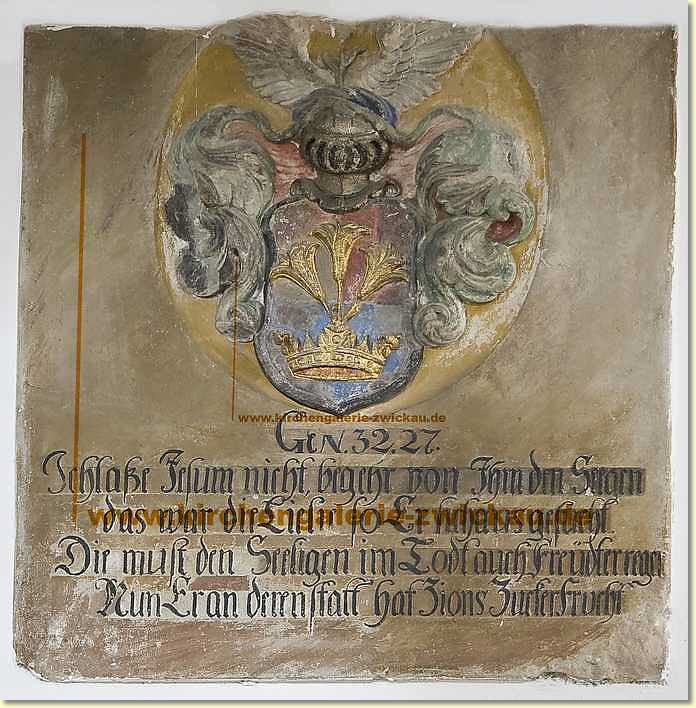 www.kirchengalerie-zwickau.de
Gen. 32. 27.
Ich laße Jesum nicht, begehr von Ihm den Seegen
das war die so Er
www.kirchengalerie-zwickau.de
Die must den Seeligen im Todt auch Freüd erregen
Nun Er an deren statt hat Zions Zucker Frucht